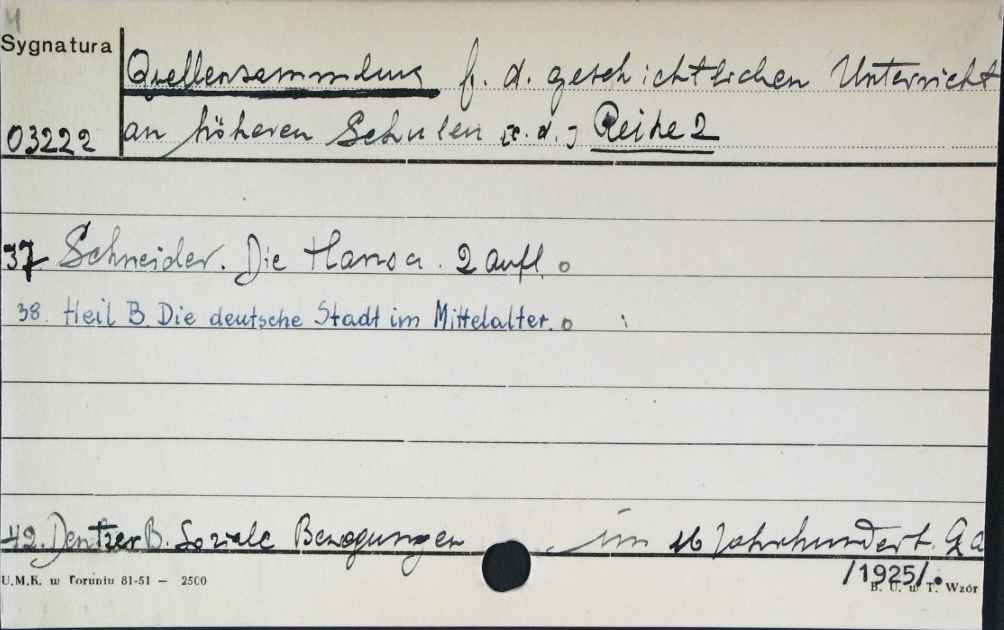 4
Sygnatura
Quellensammlung f. d. geschichtlichen Unterricht
03222 an höheren Schulen Reihe 2
37 Schneider. Die Hansa. 2 Aufl.
38. Heil B. Die deutsche Stadt im Mittelalter.
42. Dentzer B. Soziale Bewegungen im 16 Jahrhundert.
/1925/.
U.M.K. w Toruniu 81-51 — 2500
B. U. w T. Wzór